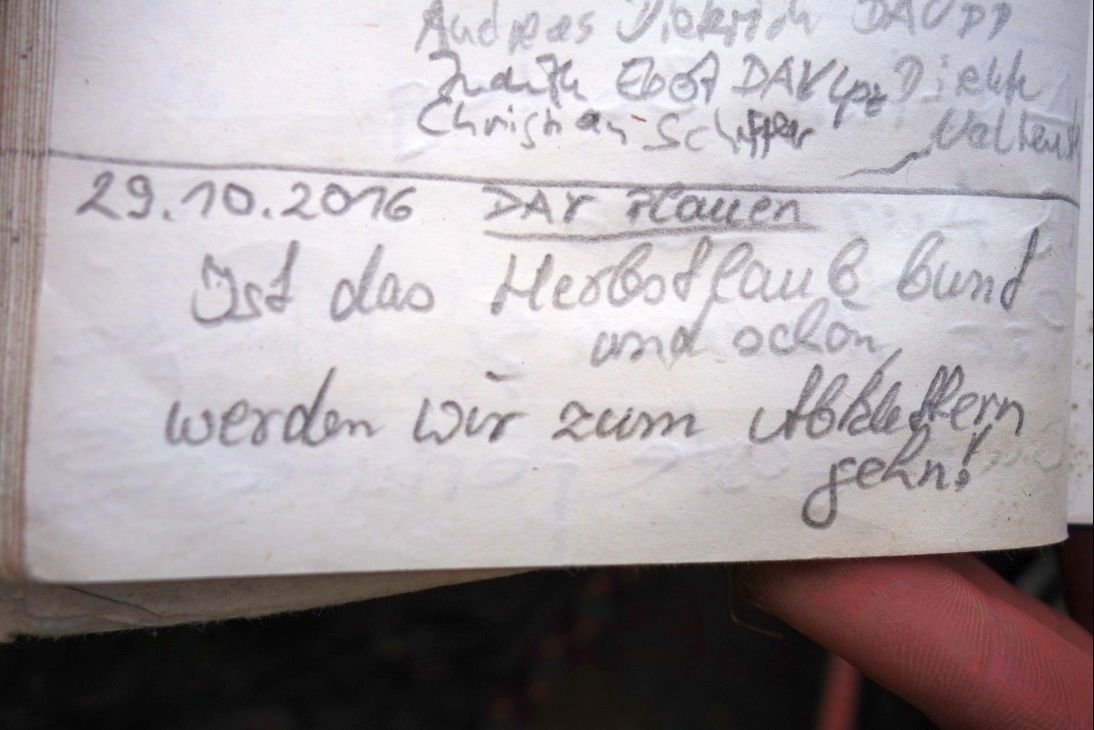 Andreas Dietrich DAV DD
Judith Ebert DAV Lpz Direkte
Christian Schiffer
29.10.2016 DAV Plauen
Ist das Herbstlaub bunt
und schön,
werden wir zum Abklettern
gehn!